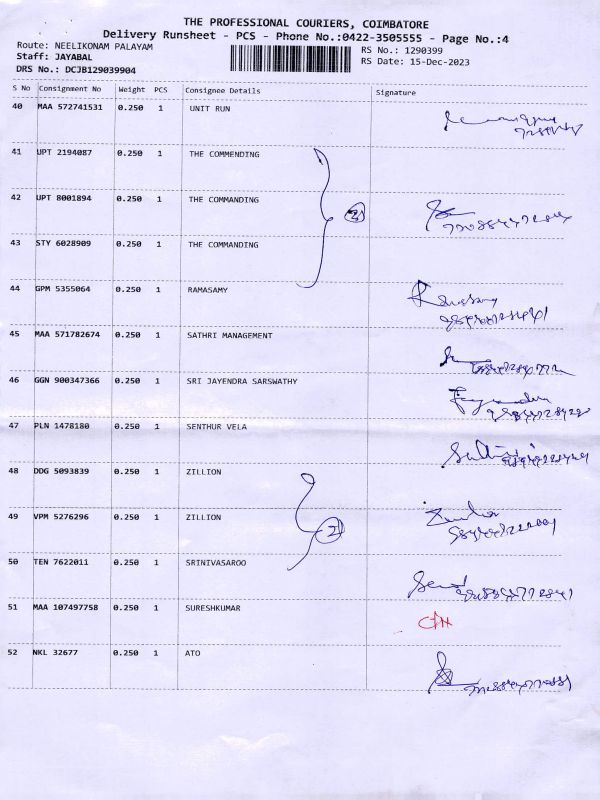 THE PROFESSIONAL COURIERS, COIMBATORE
Delivery Runsheet - PCS - Phone No.:0422-3505555 - Page No.:4
Route: NEELIKONAM PALAYAM RS No.: 1290399
Staff: JAYABAL RS Date: 15-Dec-2023
DRS No.: DCJB129039904
S No Consignment No Weight PCS Consignee Details Signature
40 MAA 572741531 0.250 1 UNIT RUN
41 UPT 2194087 0.250 1 THE COMMENDING
42 UPT 8001894 0.250 1 THE COMMANDING
43 STY 6028909 0.250 1 THE COMMANDING
44 GPM 5355064 0.250 1 RAMASAMY
45 MAA 571782674 0.250 1 SATHRI MANAGEMENT
46 GGN 900347366 0.250 1 SRI JAYENDRA SARSWATHY
47 PLN 1478180 0.250 1 SENTHUR VELA
48 DDG 5093839 0.250 1 ZILLION
49 VPM 5276296 0.250 1 ZILLION 2
50 TEN 7622011 0.250 1 SRINIVASAROO
51 MAA 107497758 0.250 1 SURESHKUMAR
52 NKL 32677 0.250 1 ATO